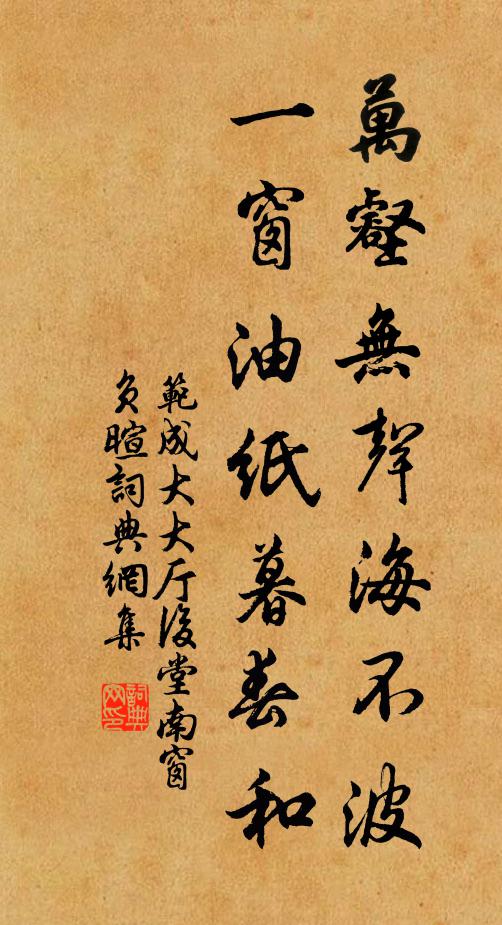 萬壑無聲海不波
一窗油紙暮春和
範成大大厅後堂南窗
负暄詞典網集
詞典
网印